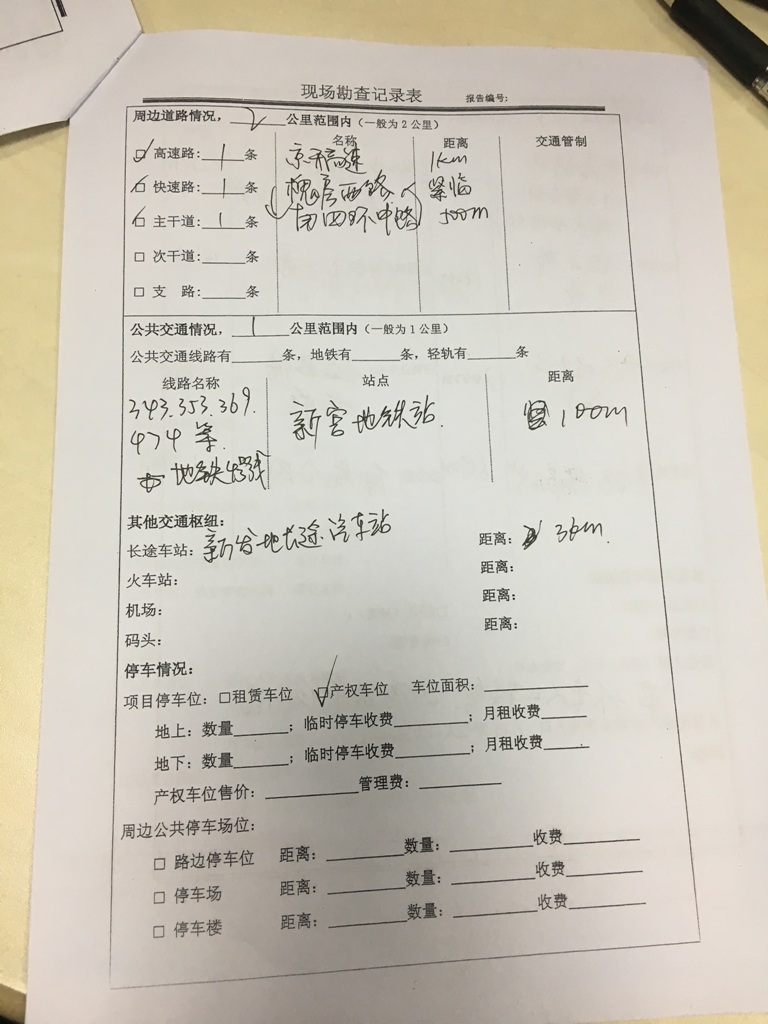 现场勘查记录表 报告编号:
周边道路情况, 2 公里范围内(一般为2公里)
名称 距离 交通管制
☑ 高速路: 1 条 京开高速 1km
☑ 快速路: 1 条 槐房西路 紧临
☑ 主干道: 1 条 南四环中路 500m
□ 次干道:______条
□ 支 路:______条
公共交通情况, 1 公里范围内(一般为1公里)
公共交通线路有______条,地铁有______条,轻轨有______条
线路名称 站点 距离
343.353.369. 新宫地铁站. 100m
474 等.
地铁4号线
其他交通枢纽:
长途车站: 新发地长途汽车站 距离: 3km.
火车站: 距离:
机场: 距离:
码头: 距离:
停车情况:
项目停车位: □租赁车位 ☑产权车位 车位面积:__________
地上: 数量______; 临时停车收费________; 月租收费_____
地下: 数量______; 临时停车收费________; 月租收费_____
产权车位售价:__________管理费:_________
周边公共停车场位:
□ 路边停车位 距离:________数量:________收费________
□ 停车场 距离:________数量:________收费________
□ 停车楼 距离:________数量:________收费________